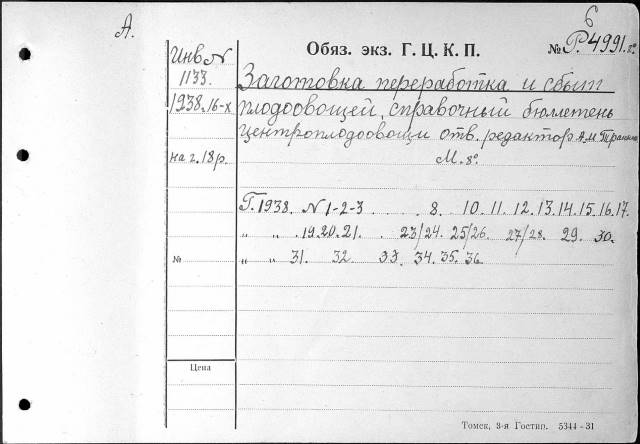 А.
6
Обяз. экз. Г. Ц. К. П.
№ Р.4991.8º
Инв N
1133.
1938.16-х
на г. 18р.
Заготовка переработка и сбыт
плодоовощей, справочный бюллетень
Центроплодоовощи отв. редактор А.М.
М. 8º
Г. 1938. N 1-2-3 . . . . 8. 10. 11. 12. 13. 14. 15. 16. 17.
„ „ . 19. 20. 21. . 23/24. 25/26. 27/28. 29. 30.
„ „ 31. 32. 33. 34. 35. 36.
№
Цена
Томск, 3-я Гостир. 5344-31